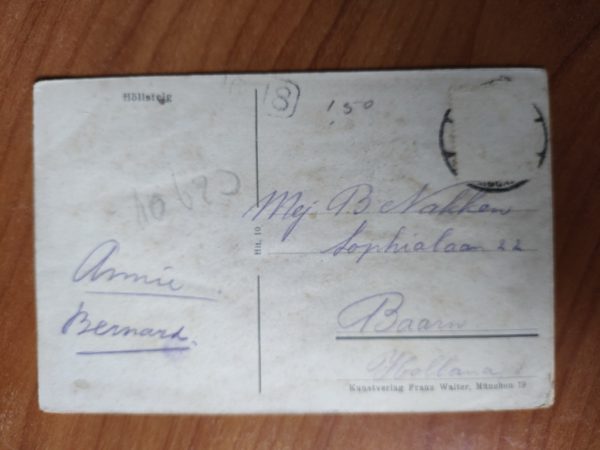 Höllsteig
1,50
Mej B Nakken
Sophialaan 22
Hit. 10
Annie
Bernard.
Baarn
Holland
Kunstverlag Franz Walter, München 19